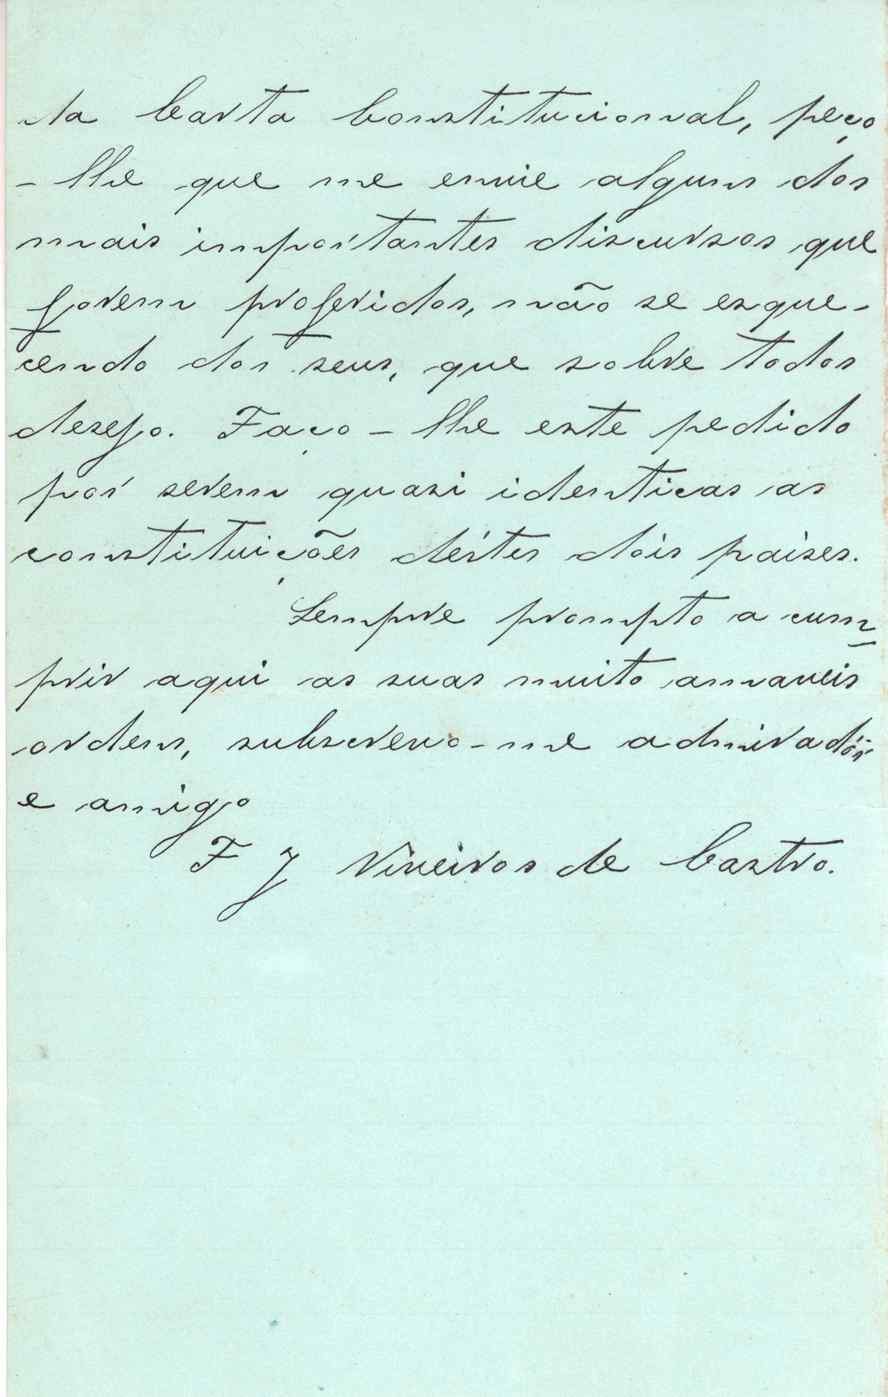 da Carta Constitucional, peço
- lhe que me envie alguns dos
mais importantes discursos que
forem proferidos, não se esque-
cendo dos seus, que sobre todos
desejo. Faço - lhe este pedido
por serem quasi identicas as
constituições déstes dois paises.
Sempre prompto a cum-
prir aqui as suas muito amaveis
ordens, subscrevo-me admirador
e amigo
F J Viveiros de Castro.